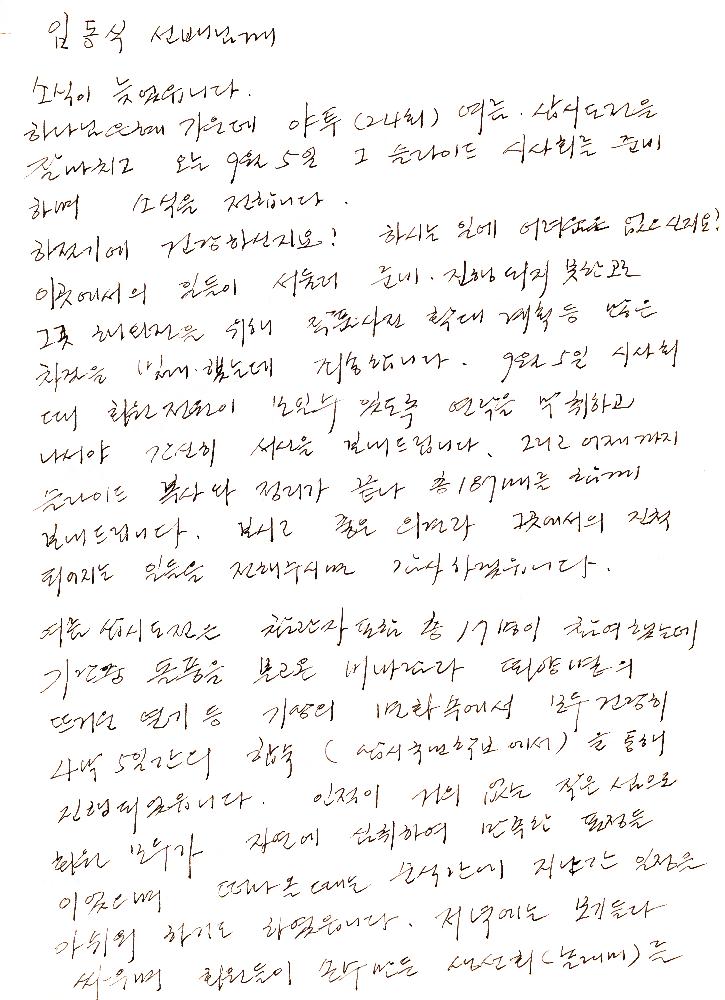 임동식 선배님께
소식이 늦었읍니다.
하나님 은혜 가운데 야투(24회) 여름. 삽시도전을
잘 마치고 오는 9월 5일 그 슬라이드 시사회를 준비
하며 소식을 전합니다.
하절기에 건강하신지요! 하시는 일에 어려움은 없으신지요!
이곳에서의 일들이 서둘러 준비.진행되지 못한고로
그곳 해외전을 위해 작품사진 확대 계획등 많은
차질을 빚게.했는데 죄송합니다. 9월 5일 시사회
때 회원 전원이 모일수 있도록 연락을 취하고
나서야 간신히 서신을 보내드립니다. 그리고 어제까지
슬라이드 복사와 정리가 끝나 총 187매를 함께
보내드립니다. 보시고 좋은 의견과 그곳에서의 진척
되어지는 일들을 전해주시면 감사하겠읍니다.
여름 삽시도전은 참관자 포함 총 17명이 참여했는데
기간중 돌풍을 몰고온 비바람과 뙤약볕의
뜨거운 열기 등 기상의 변화속에서 모두 건강히
4박 5일간의 합숙 (삽시국민학교에서)을 통해
진행되었읍니다. 인적이 거의 없는 작은 섬으로
회원 모두가 자연에 심취하여 만족한 표정들
이었으며 떠나올때는 순식간에 지나간 일정을
아쉬워 하기도 하였읍니다. 저녁에는 모기들과
싸우며 회원들이 손수만든 생선회(놀래미)를